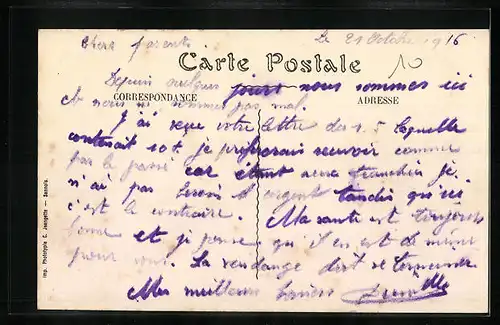 Chers parents
Le 21 Octobre 1916
Carte Postale
10
Depuis quelques jours nous sommes ici
CORRESPONDANCE
ADRESSE
et nous ne sommes pas mal.
J'ai reçu votre lettre du 5 laquelle
contenait 10f. je préférerais recevoir comme
par le passé car étant aux tranchées je
n'ai pas besoin d'argent tandis qu'ici
c'est le contraire. Ma santé est toujours
bonne et je pense qu'il en est de même
pour vous. La vendange doit se terminer
Mes meilleurs baisers
Imp. Phototypie C. Jeangette — Sannois.